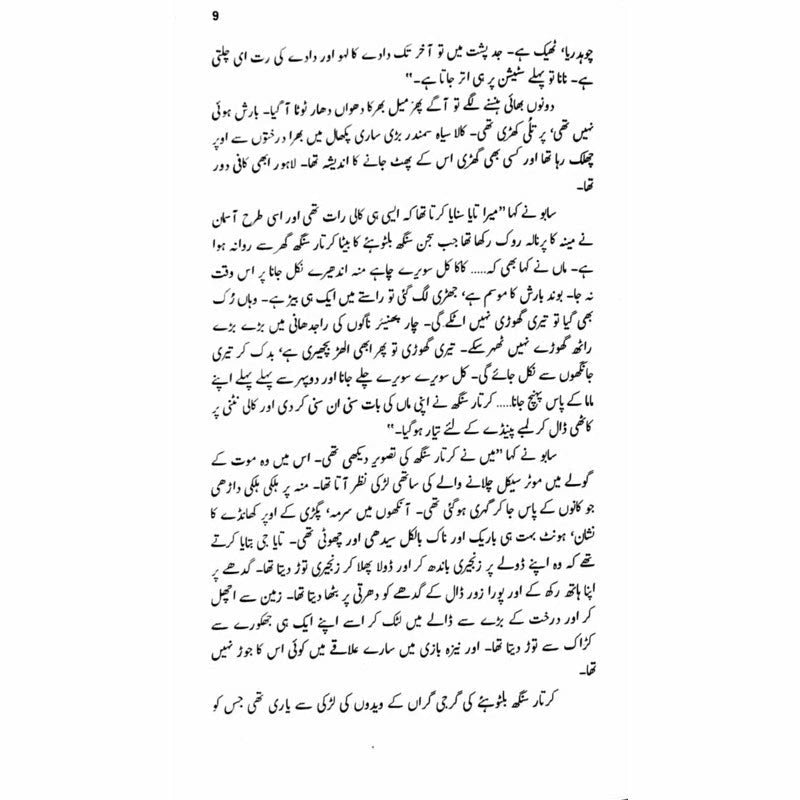 9
چوہدریا، ٹھیک ہے۔ جد پشت میں تو آخر تک دادے کا لہو اور دادے کی رت ای چلتی
ہے۔ نانا تو پہلے سٹیشن پر ہی اتر جاتا ہے۔"
دونوں بھائی ہنسنے لگے تو آگے پھر میل بھر کا دھواں دھار ٹوٹا آ گیا۔ بارش ہوئی
نہیں تھی، پر تلی کھڑی تھی۔ کالا سیاہ سمندر بڑی ساری پکھال میں بھرا درختوں سے اوپر
چھلک رہا تھا اور کسی بھی گھڑی اس کے پھٹ جانے کا اندیشہ تھا۔ لاہور ابھی کافی دور
تھا۔
سابو نے کہا "میرا تایا سنایا کرتا تھا کہ ایسی ہی کالی رات تھی اور اسی طرح آسمان
نے مینہ کا پرنالہ روک رکھا تھا جب سجن سنگھ بلٹوہئے کا بیٹا کرتار سنگھ گھر سے روانہ ہوا
ہے۔ ماں نے کہا بھی کہ..... کاکا کل سویرے چاہے منہ اندھیرے نکل جانا پر اس وقت
نہ جا۔ بوند بارش کا موسم ہے، جھڑی لگ گئی تو راستے میں ایک ہی بیڑ ہے۔ وہاں رُک
بھی گیا تو تیری گھوڑی نہیں اٹکے گی۔ چار پھنیئر ناگوں کی راجدھانی میں بڑے بڑے
راٹھ گھوڑے نہیں ٹھہر سکے۔ تیری گھوڑی تو پھر ابھی الھڑ پچھیری ہے، بدک کر تیری
جانگھوں سے نکل جائے گی۔ کل سویرے سویرے چلے جانا اور دوپہر سے پہلے پہلے اپنے
ماما کے پاس پہنچ جانا..... کرتار سنگھ نے اپنی ماں کی بات سنی ان سنی کر دی اور کالی نٹنی پر
کاٹھی ڈال کر لمبے پینڈے کے لئے تیار ہو گیا۔"
سابو نے کہا "میں نے کرتار سنگھ کی تصویر دیکھی تھی۔ اس میں وہ موت کے
گولے میں موٹر سیکل چلانے والے کی ساتھی لڑکی نظر آتا تھا۔ منہ پر ہلکی ہلکی داڑھی
جو کانوں کے پاس جا کر گہری ہو گئی تھی۔ آنکھوں میں سرمہ، پگڑی کے اوپر کھانڈے کا
نشان، ہونٹ بہت ہی باریک اور ناک بالکل سیدھی اور چھوٹی تھی۔ تایا جی بتایا کرتے
تھے کہ وہ اپنے ڈولے پر زنجیری باندھ کر اور ڈولا پھلا کر زنجیری توڑ دیتا تھا۔ گدھے پر
اپنا ہاتھ رکھ کے اور پورا زور ڈال کے گدھے کو دھرتی پر بٹھا دیتا تھا۔ زمین سے اچھل
کر اور درخت کے بڑے سے ڈالے میں لٹک کر اسے اپنے ایک ہی جھکورے سے
کڑاک سے توڑ دیتا تھا۔ اور نیزہ بازی میں سارے علاقے میں کوئی اس کا جوڑ نہیں
تھا۔
کرتار سنگھ بلٹوہئے کی گرجی گراں کے ویدوں کی لڑکی سے یاری تھی جس کو